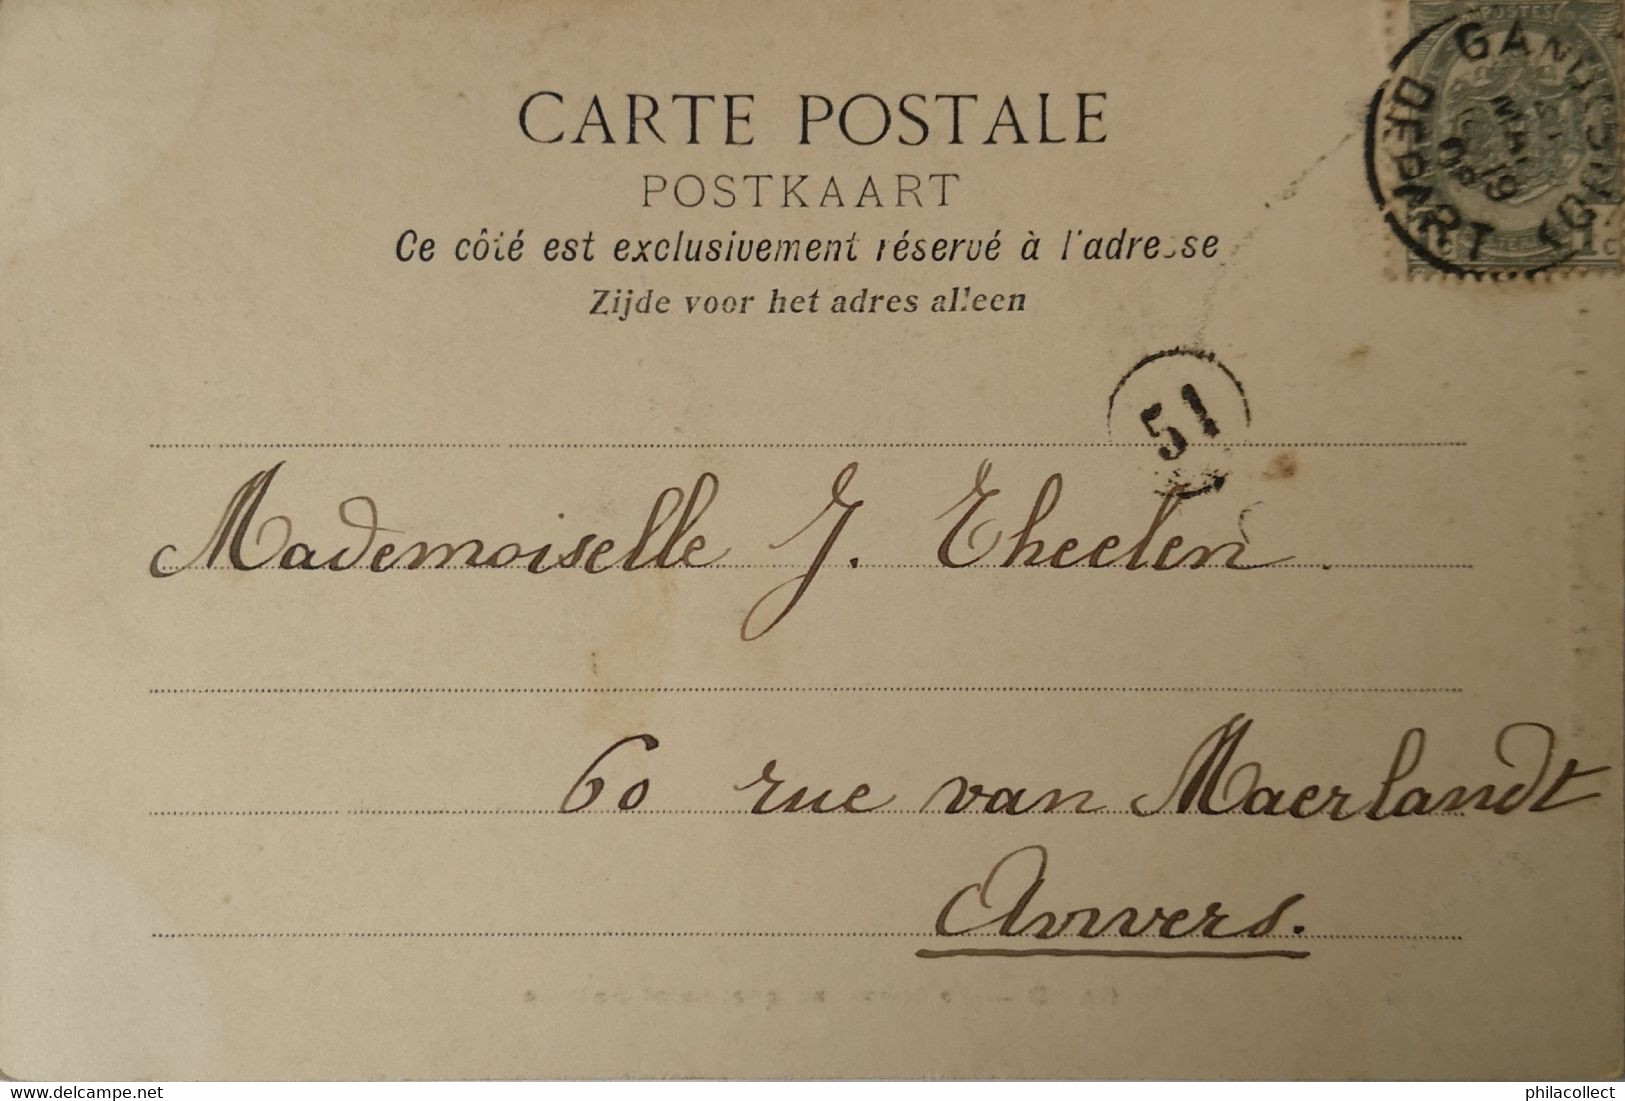 POSTES
GAND
DEPART
1c
CARTE POSTALE
POSTKAART
Ce côté est exclusivement réservé à l'adresse
Zijde voor het adres alleen
51
Mademoiselle J. Theelen.
60 rue van Maerlandt
Anvers.
delcampe.net
philacollect